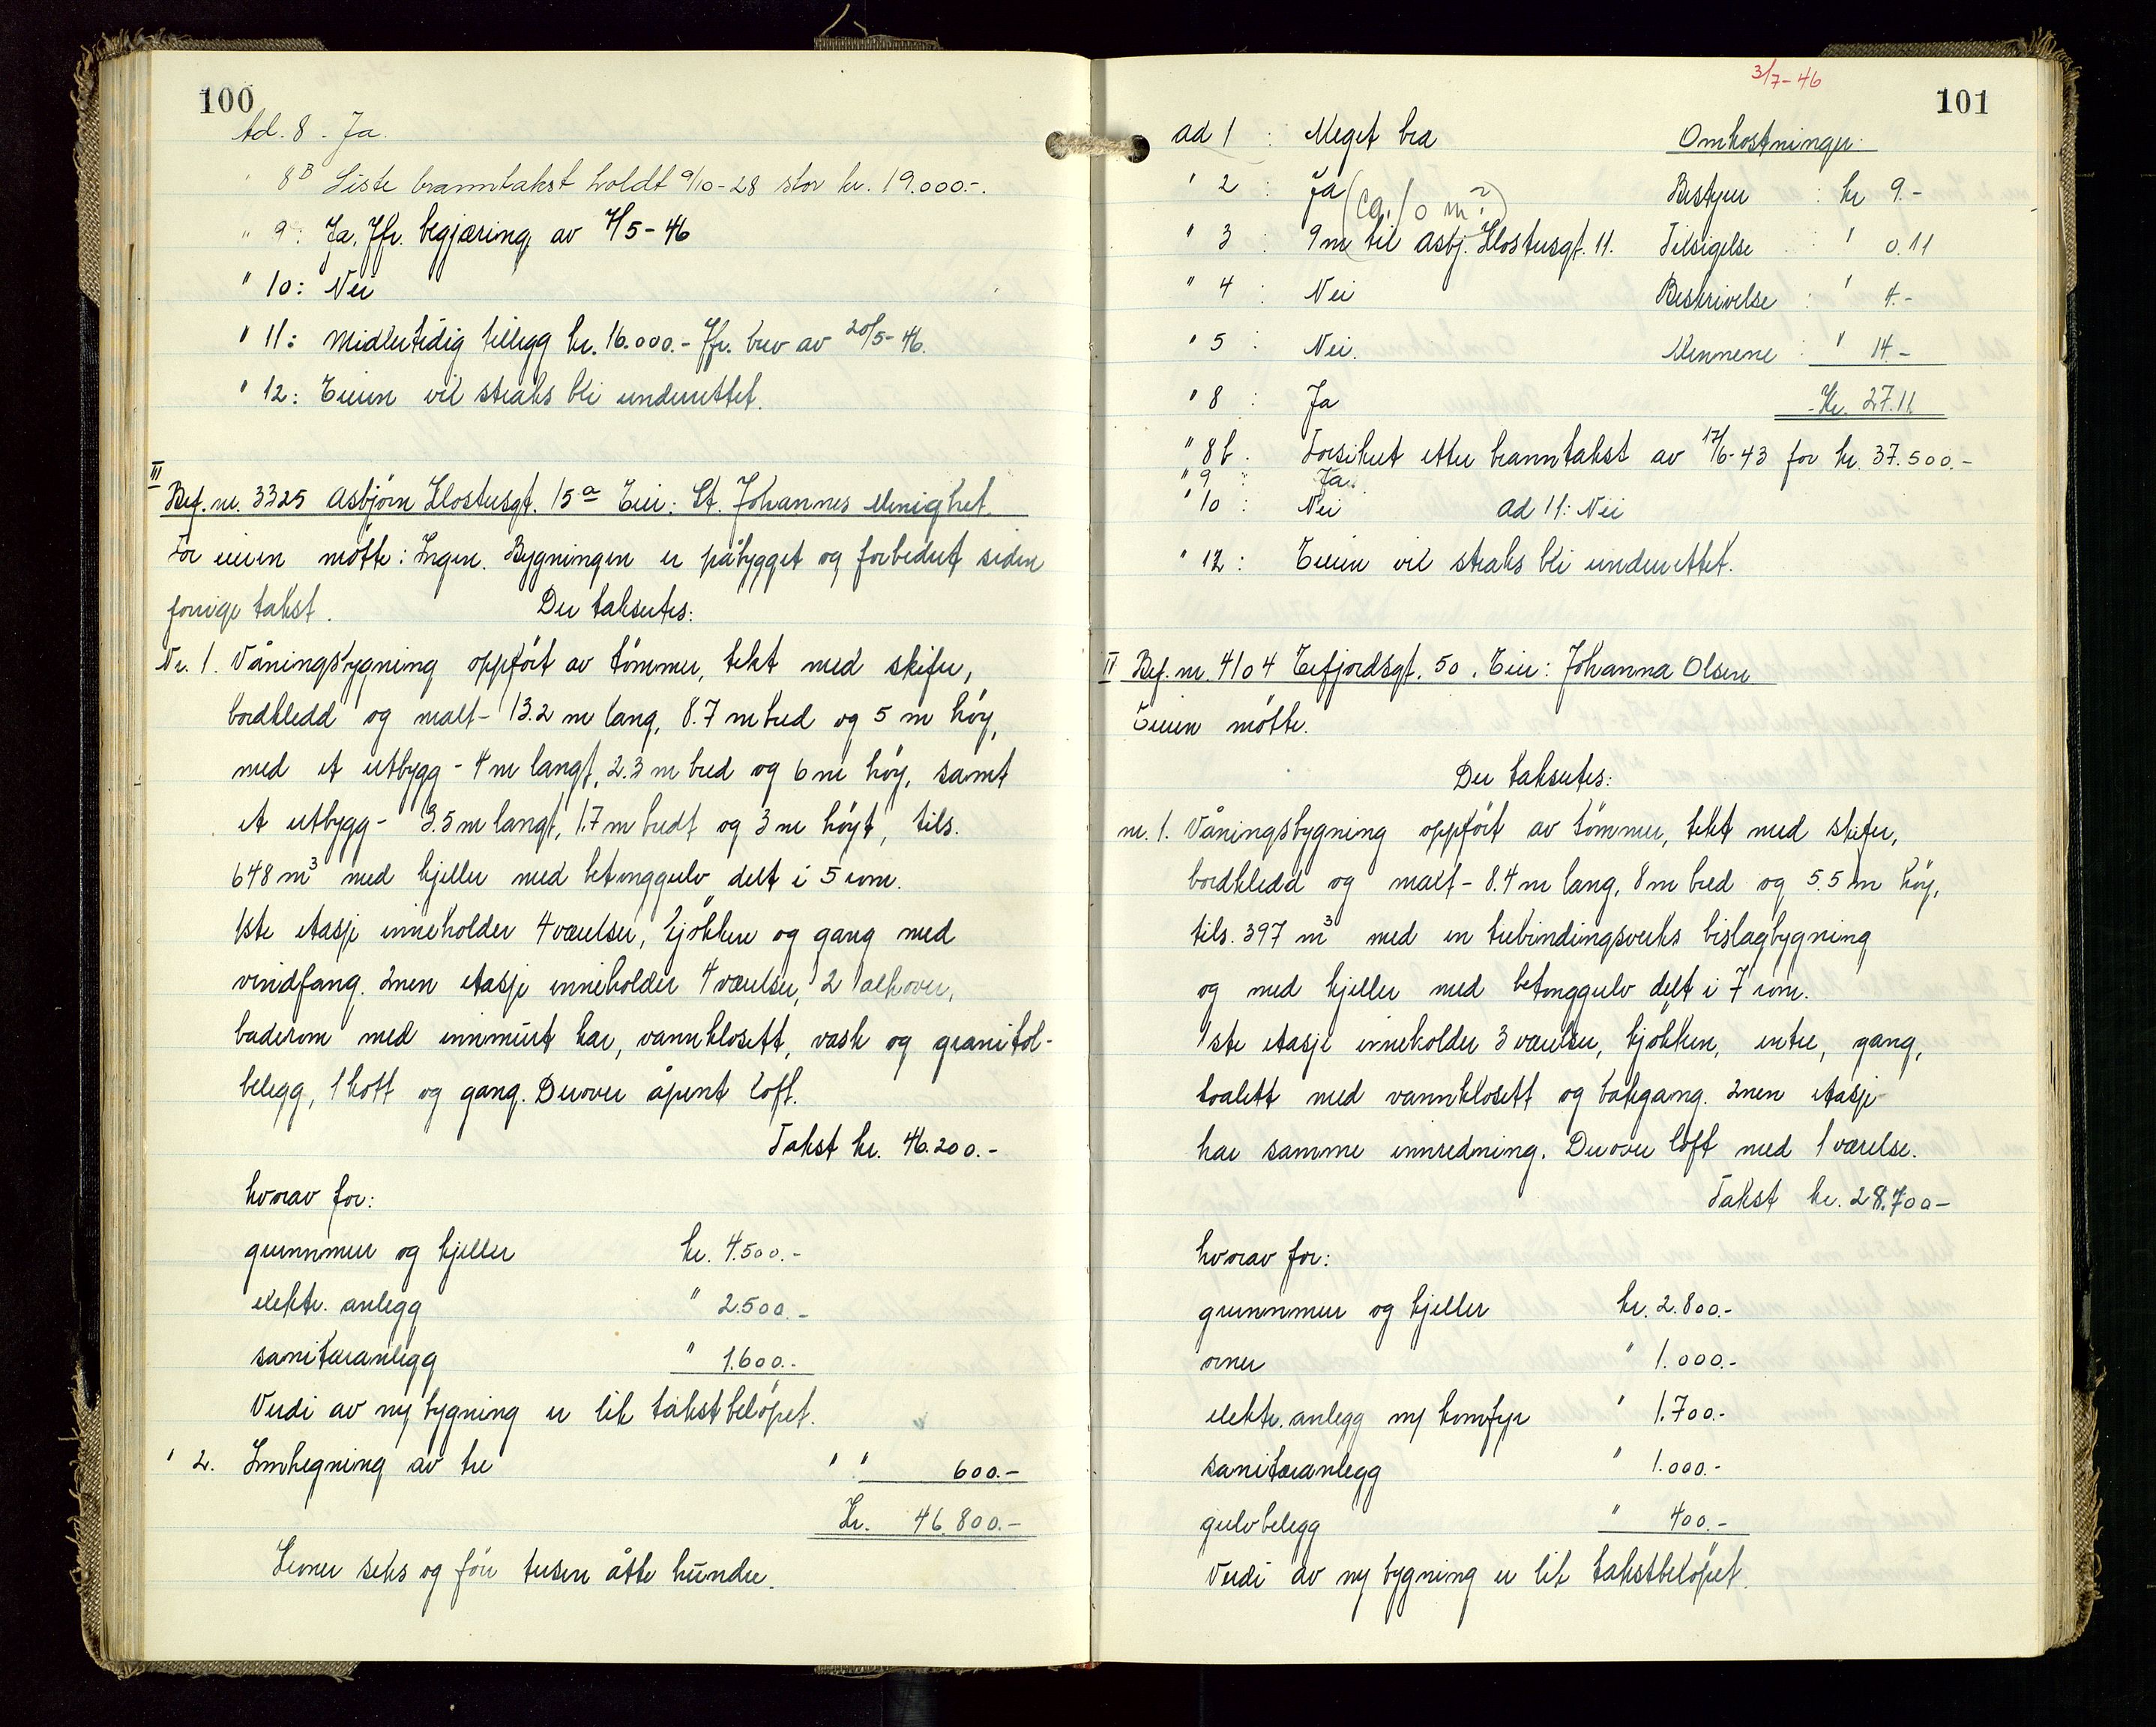 100
Ad. 8. Ja.
" 8B Siste branntakst holdt 9/10-28 stor kr. 19.000.-.
" 9: Ja. Jfr. begjæring av 7/5-46
" 10: Nei
" 11: Midlertidig tillegg kr. 16.000.- Jfr. brev av 20/5-46.
" 12: Eieren vil straks bli underrettet.
III
Bef. nr. 3325 Asbjørn Klostersgt. 15a Eier: St. Johannes Menighet.
For eieren møtte: Ingen. Bygningen er påbygget og forbedret siden
forrige takst. Der takseres:
Nr. 1. Våningsbygning oppført av tømmer, tekt med skifer,
bordkledd og malt - 13.2 m lang, 8.7 m bred og 5 m høy,
med et utbygg - 4 m langt, 2.3 m bred og 6 m høy, samt
et utbygg - 3.5 m langt, 1.7 m bredt og 3 m høyt, tils.
648 m3 med kjeller med betonggulv delt i 5 rom.
1ste etasje inneholder 4 værelser, kjøkken og gang med
vindfang. 2nen etasje inneholder 4 værelser, 2 alkover,
baderom med innmurt kar, vannklosett, vask og granitol-
belegg, 1 kott og gang. Derover åpent loft.
Takst kr. 46.200.-
hvorav for:
grunnmur og kjeller kr. 4.500.-
elektr. anlegg " 2.500.-
sanitæranlegg " 1.600.-
Verdi av ny bygning er lik takstbeløpet.
" 2. Innhegning av tre " " 600.-
Kr. 46.800.-
Kroner seks og førr tusen åtte hundre.
3/7-46
101
ad 1 : Meget bra
" 2 : Ja (ca. 10 m2)
" 3 : 9 m til Asbj. Klostersgt. 11.
" 4 : Nei
" 5 : Nei.
" 8 : Ja
Omkostninger:
Bestyrer : kr 9.-
Tilsigelse : " 0.11
Beskrivelse : " 4.-
Mennene : " 14.-
Kr. 27.11
" 8b. Forsikret etter branntakst av 17/6-43 for kr. 37.500.-
" 9 : Ja.
" 10 : Nei ad 11: Nei
" 12 : Eieren vil straks bli underrettet.
IV Bef. nr. 4104 Eefjordsgt. 50. Eier: Johanna Olsen
Eieren møtte.
Der takseres:
nr. 1. Våningsbygning oppført av tømmer, tekt med skifer,
bordkledd og malt - 8.4 m lang, 8 m bred og 5.5 m høy,
tils. 397 m3 med en trebindingsverks bislagbygning
og med kjeller med betonggulv delt i 7 rom.
1ste etasje inneholder 3 værelser, kjøkken, entre, gang,
toalett med vannklosett og bakgang. 2nen etasje
har samme innredning. Derover loft med 1 værelse.
Takst kr. 28.700-
hvorav for:
grunnmur og kjeller kr. 2.800.-
ovner " 1.000.-
elektr. anlegg m/ komfyr " 1.700.-
sanitæranlegg " 1.000.-
gulvbelegg " 400.-
Verdi av ny bygning er lik takstbeløpet.